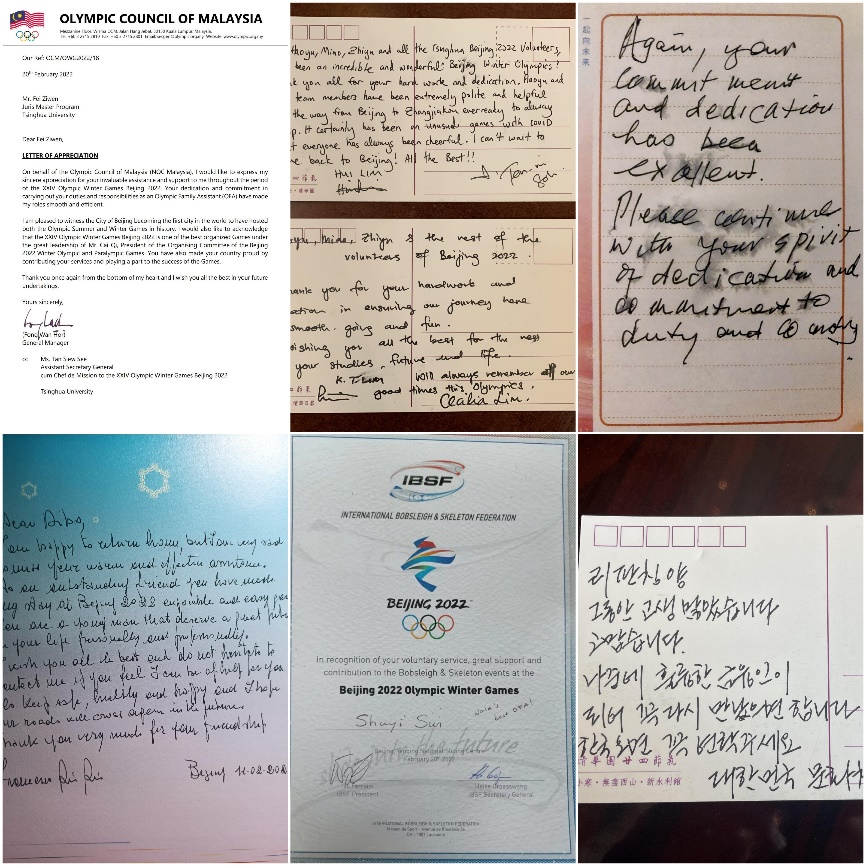 OLYMPIC COUNCIL OF MALAYSIA
Mezzanine Floor, Wisma OCM, Jalan Hang Jebat, 50150 Kuala Lumpur, Malaysia
Our Ref: OCM/OWG.2022/18
20th February 2022
Mr. Fei Ziwen
Juris Master Program
Tsinghua University
Dear Fei Ziwen,
LETTER OF APPRECIATION
On behalf of the Olympic Council of Malaysia (NOC Malaysia), I would like to express my
sincere appreciation for your invaluable assistance and support to me throughout the period
of the XXIV Olympic Winter Games Beijing 2022. Your dedication and commitment in
carrying out your duties and responsibilities as an Olympic Family Assistant (OFA) have made
my roles smooth and efficient.
I am pleased to witness the City of Beijing becoming the first city in the world to have hosted
both the Olympic Summer and Winter Games in history. I would also like to acknowledge
that the XXIV Olympic Winter Games Beijing 2022 is one of the best organized Games under
the great leadership of Mr. Cai Qi, President of the Organising Committee of the Beijing
2022 Winter Olympic and Paralympic Games. You have also made your country proud by
contributing your services and playing a part to the success of the Games.
Thank you once again from the bottom of my heart and I wish you all the best in your future
undertakings.
Yours sincerely,
(Fong Wah Hor)
General Manager
cc Ms. Tan Siew See
Assistant Secretary General
cum Chef de Mission to the XXIV Olympic Winter Games Beijing 2022
Tsinghua University
Haoyu, Mino, Zhiyu and all the Tsinghua Beijing 2022 Volunteers,
been an incredible and wonderful Beijing Winter Olympics!
you all for your hard work and dedication. Haoyu and
team members have been extremely polite and helpful
the way from Beijing to Zhangjiakou ever ready to always
It certainly has been an unusual games with covid
everyone has always been cheerful. I can't wait to
back to Beijing! All the Best!!
Mino, Zhiyu & the rest of the
volunteers of Beijing 2022.
Thank you for your handwork and
in ensuring our journey here
smooth going and fun.
wishing you all the best for the next
your studies, future and life.
K. T Lim Will always remember our
good times this Olympics.
Cecilia Lim.
一起向未来
Again, your
commitment
and dedication
has been
excellent.
Please continue
with your spirit
of dedication and
commitment to
duty and country
Dear Bibo,
I am happy to return home, but I am very sad
to miss your warm and effective assistance.
As an outstanding friend you have made
my stay at Beijing 2022 enjoyable and easy
you are a young man that deserve a great
in your life personally and professionally.
I wish you all the best and do not hesitate to
contact me if you feel I can be of help for you
keep safe, healthy and happy and I hope
our roads will cross again in the future.
Thank you very much for your friendship
Beijing 14-02-202
IBSF
INTERNATIONAL BOBSLEIGH & SKELETON FEDERATION
BEIJING 2022
In recognition of your voluntary service, great support and
contribution to the Bobsleigh & Skeleton events at the
Beijing 2022 Olympic Winter Games
Shuyi Sun
World's best OFA!
Beijing, Yanqing National Sliding Centre
IBSF President
IBSF Secretary General
INTERNATIONAL BOBSLEIGH & SKELETON FEDERATION
그동안 고생 많았습니다
고맙습니다.
나중에 훌륭한 금융인이
되어 꼭 다시 만났으면 합니다
한국오면 꼭 연락주세요
대한민국